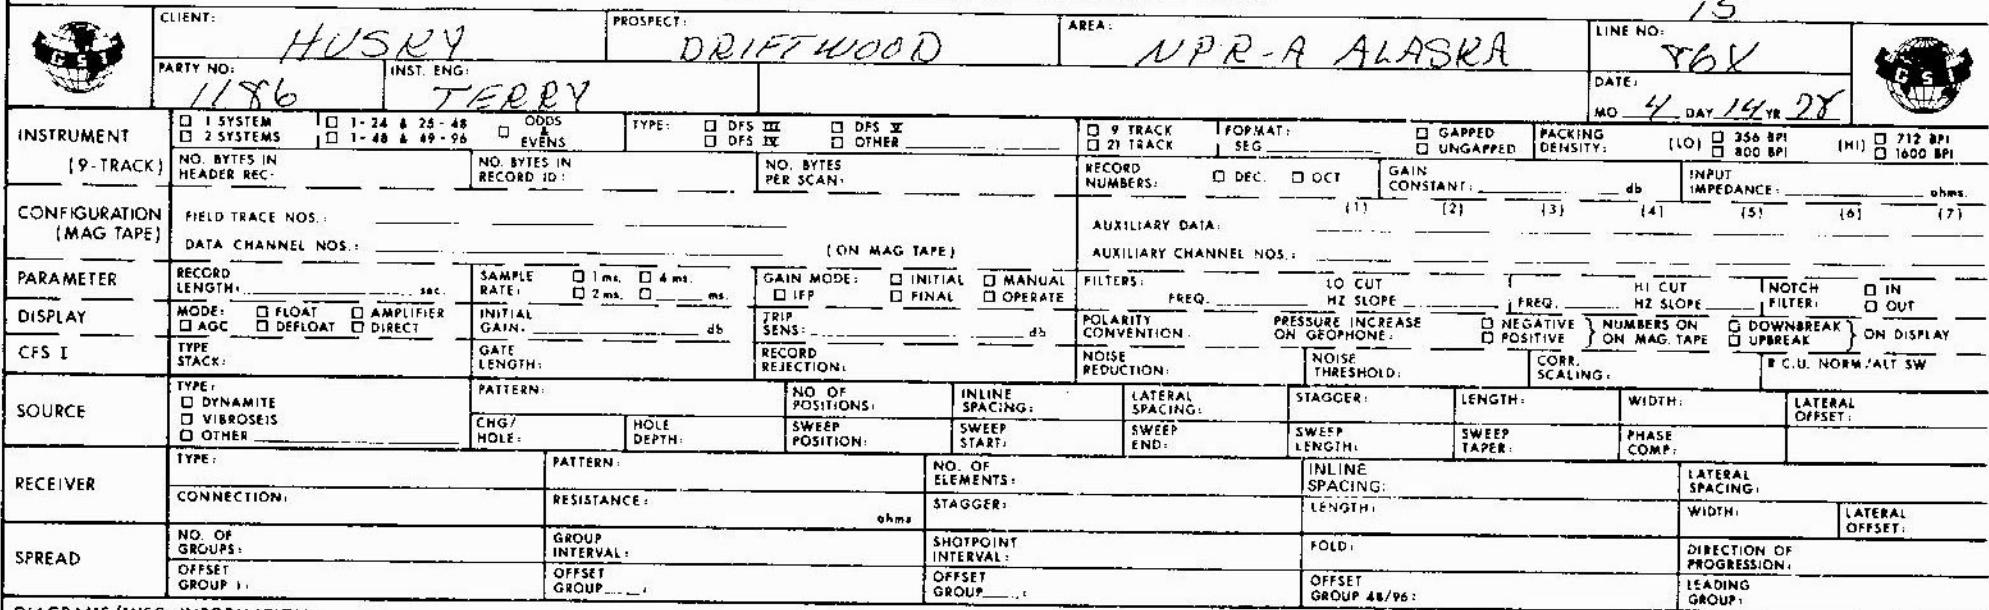 15
CLIENT: HUSKY PROSPECT: DRIFTWOOD AREA: NPR-A ALASKA LINE NO: 86X
GSI GSI
PARTY NO: 1186 INST. ENG: TERRY DATE: MO 4 DAY 14 YR 78
INSTRUMENT (9-TRACK)
□ 1 SYSTEM □ 1-24 & 25-48 □ ODDS & EVENS TYPE: □ DFS III □ DFS V □ 9 TRACK FORMAT: □ GAPPED PACKING DENSITY: (LO) □ 356 BPI (HI) □ 712 BPI
□ 2 SYSTEMS □ 1-48 & 49-96 □ DFS IV □ OTHER □ 21 TRACK SEG □ UNGAPPED □ 800 BPI □ 1600 BPI
NO. BYTES IN HEADER REC: NO. BYTES IN RECORD ID: NO. BYTES PER SCAN: RECORD NUMBERS: □ DEC. □ OCT GAIN CONSTANT: db INPUT IMPEDANCE: ohms.
CONFIGURATION (MAG TAPE)
(1) (2) (3) (4) (5) (6) (7)
FIELD TRACE NOS.: AUXILIARY DATA:
DATA CHANNEL NOS.: (ON MAG TAPE) AUXILIARY CHANNEL NOS.:
PARAMETER RECORD LENGTH: sec. SAMPLE RATE: □ 1 ms. □ 4 ms. □ 2 ms. □ ms. GAIN MODE: □ INITIAL □ MANUAL □ IFP □ FINAL □ OPERATE FILTERS: FREQ. LO CUT HZ SLOPE FREQ. HI CUT HZ SLOPE NOTCH FILTER: □ IN □ OUT
DISPLAY MODE: □ FLOAT □ AMPLIFIER □ AGC □ DEFLOAT □ DIRECT INITIAL GAIN: db TRIP SENS: db POLARITY CONVENTION: PRESSURE INCREASE ON GEOPHONE: □ NEGATIVE □ POSITIVE } NUMBERS ON ON MAG. TAPE □ DOWNBREAK □ UPBREAK } ON DISPLAY
CFS I TYPE STACK: GATE LENGTH: RECORD REJECTION: NOISE REDUCTION: NOISE THRESHOLD: CORR. SCALING: R.C.U. NORM/ALT SW
SOURCE
TYPE: □ DYNAMITE □ VIBROSEIS □ OTHER
PATTERN: NO OF POSITIONS: INLINE SPACING: LATERAL SPACING: STAGGER: LENGTH: WIDTH: LATERAL OFFSET:
CHG/HOLE: HOLE DEPTH: SWEEP POSITION: SWEEP START: SWEEP END: SWEEP LENGTH: SWEEP TAPER: PHASE COMP:
RECEIVER
TYPE: PATTERN: NO. OF ELEMENTS: INLINE SPACING: LATERAL SPACING:
CONNECTION: RESISTANCE: ohms STAGGER: LENGTH: WIDTH: LATERAL OFFSET:
SPREAD
NO. OF GROUPS: GROUP INTERVAL: SHOTPOINT INTERVAL: FOLD: DIRECTION OF PROGRESSION:
OFFSET GROUP 1: OFFSET GROUP : OFFSET GROUP : OFFSET GROUP 48/96: LEADING GROUP: